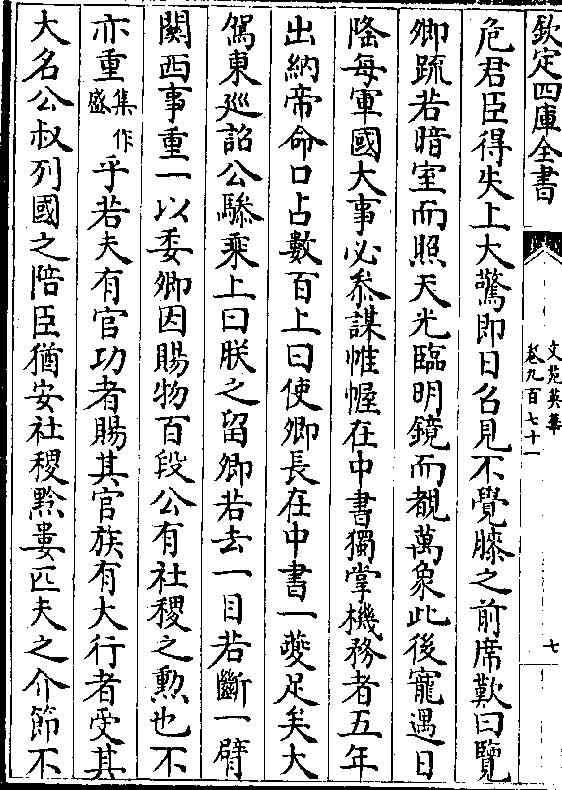 欽定四庫全書
文苑英華
卷九百七十一
七
危君臣得失上大驚即日召見不覺膝之前席歎曰覽
卿疏若暗室而照天光臨明鏡而覩萬象此後寵遇日
隆每軍國大事必叅謀帷幄在中書獨掌機務者五年
出納帝命口占數百上曰使卿長在中書一夔足矣大
駕東廵詔公驂乘上曰朕之留卿若去一目若斷一臂
關西事重一以委卿因賜物百段公有社稷之勲也不
亦重集作盛乎若夫有官功者賜其官族有大行者受其
大名公叔列國之陪臣猶安社稷黔婁匹夫之介節不